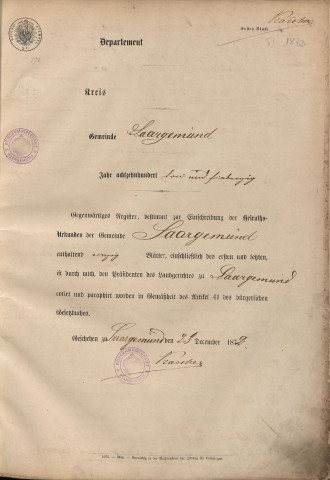 Karcher
Erstes Blatt
1873
Departement
Kreis
Gemeinde Saargemünd
Jahr achtzehnhundert drei und siebenzig
Gegenwärtiges Register, bestimmt zur Einschreibung der Heiraths-
Urkunden der Gemeinde Saargemünd
enthaltend Blätter, einschließlich des ersten und letzten,
ist durch mich, den Präsidenten des Landgerichtes zu Saargemünd
cotirt und paraphirt worden in Gemäßheit des Artikel 41 des bürgerlichen
Gesetzbuches.
Geschehen zu Saargemünd den 23 December 1872
Karcher